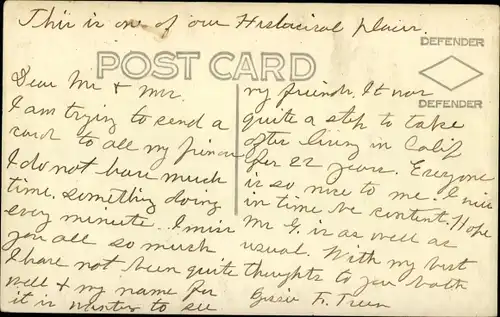 This is one of our Historical places.
DEFENDER
POST CARD
DEFENDER
Dear Mr & Mrs.
I am trying to send a
card to all my friends
I do not have much
time. something doing
every minute. I miss
you all so much
I have not been quite
well & my name for
it is wanter to see
my friends. It was
quite a step to take
after living in Calif
for 22 years. Everyone
is so nice to me. I will
in time be content. Hope
Mr G. is as well as
usual. With my best
thoughts to you both
F.